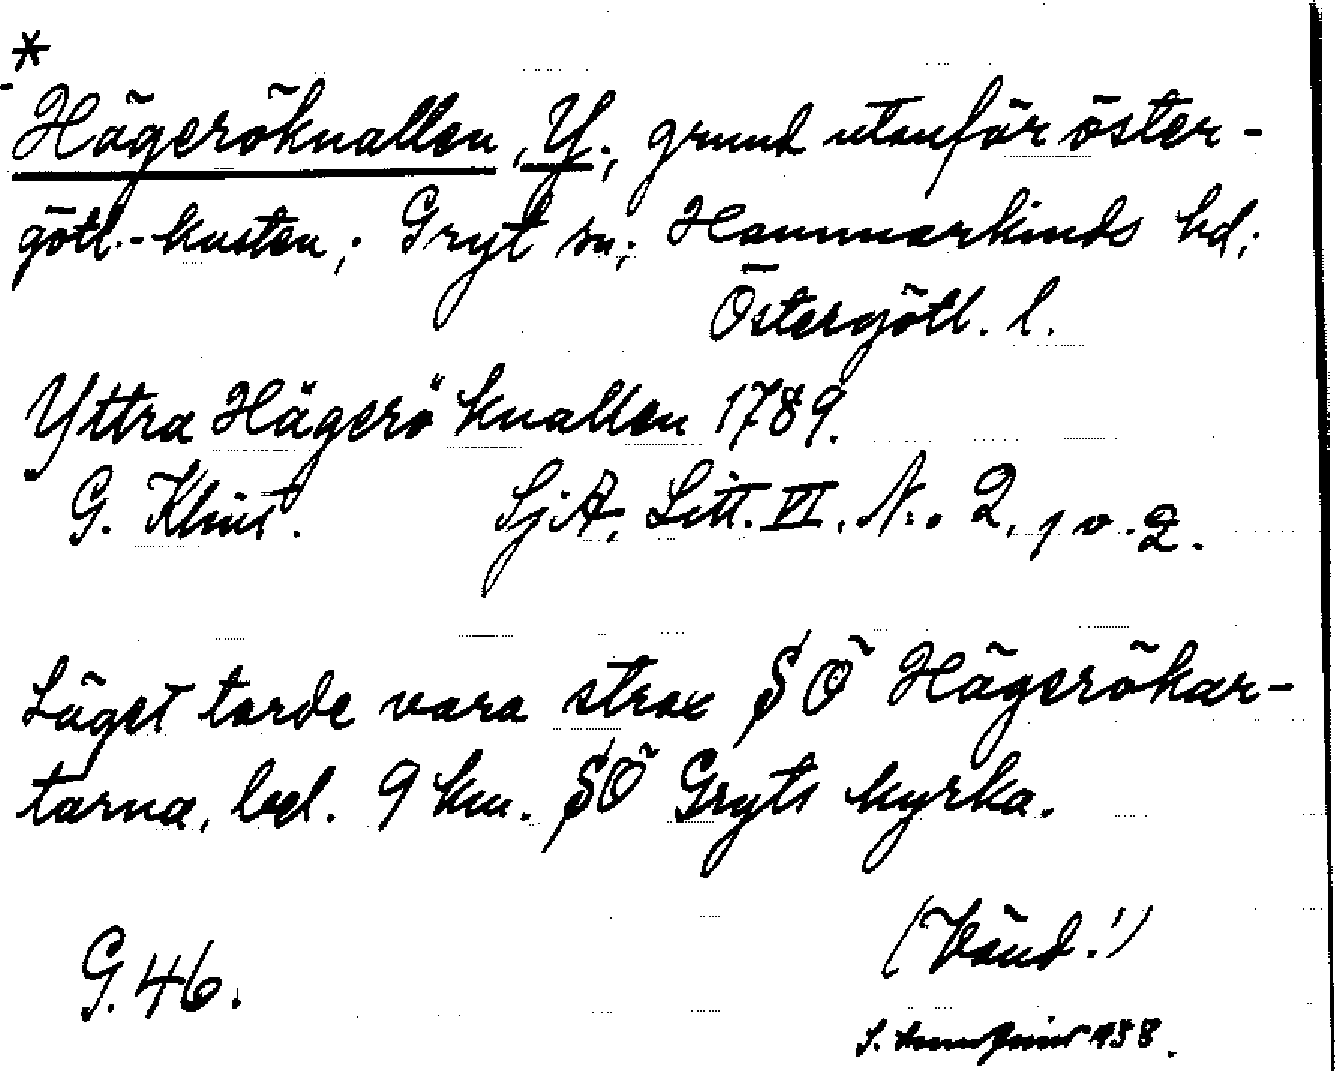 *
Hägeröknallen, Y., grund utanför öster-
götl.-kusten; Gryt sn; Hammarkinds hd;
Östergötl. l.
Yttra Hägerö knallen 1789.
G. Klint. SjA, Litt. VI. N:o 2, p. 2.
Läget torde vara strax SÖ Hägerökar-
tarna, bel. 9 km. SÖ Gryts kyrka.
(Vänd!)
G. 46.
S. 1938.